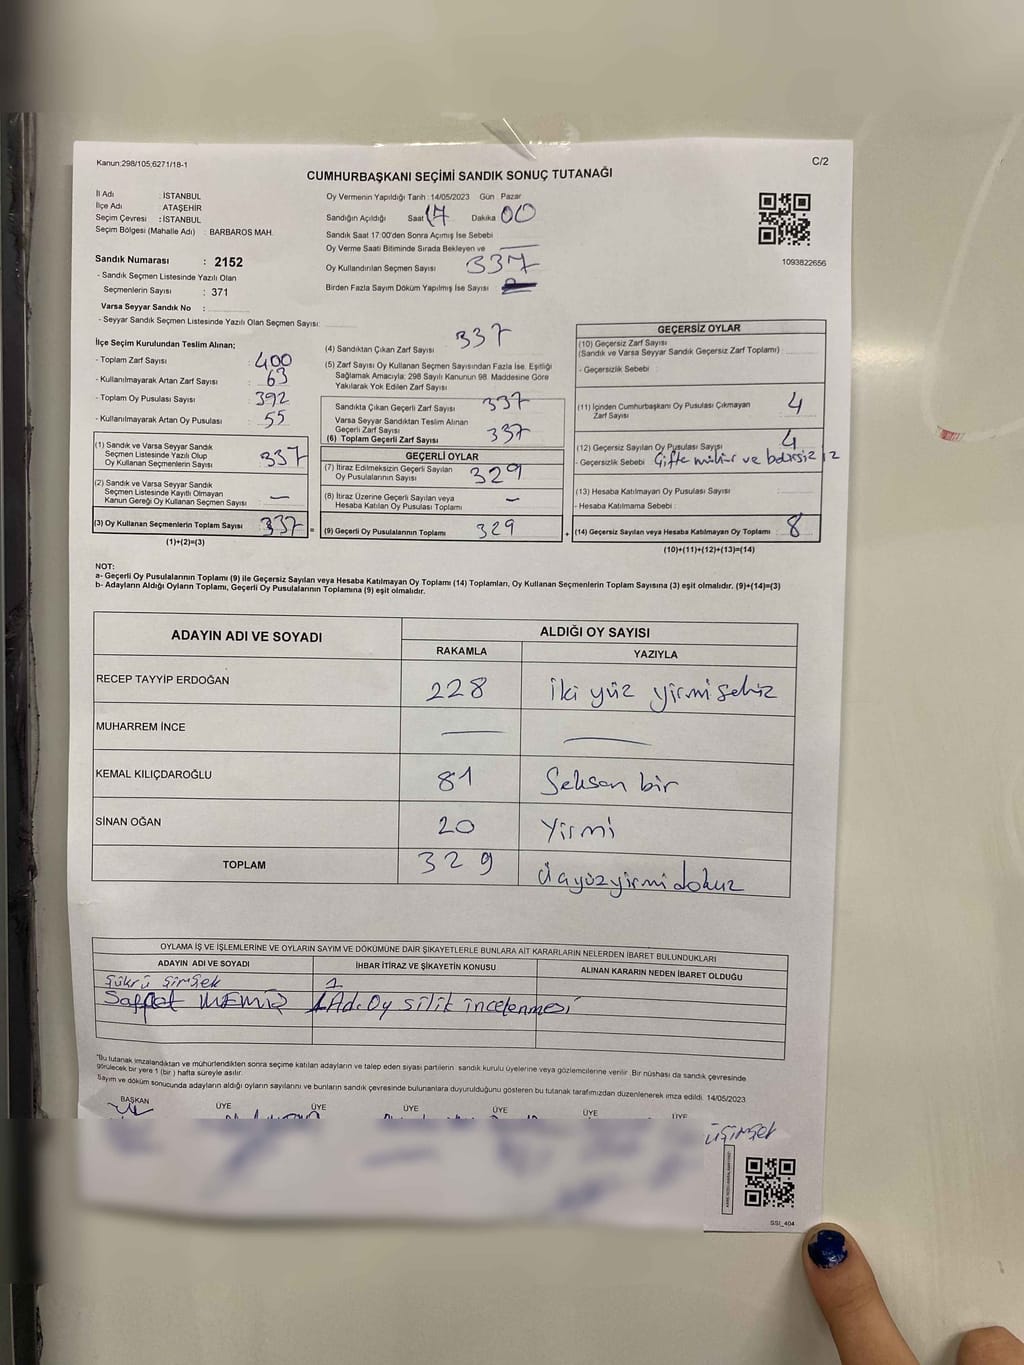 Kanun:298/105;6271/18-1
C/2
CUMHURBAŞKANI SEÇİMİ SANDIK SONUÇ TUTANAĞI
İl Adı : İSTANBUL
İlçe Adı : ATAŞEHİR
Seçim Çevresi : İSTANBUL
Seçim Bölgesi (Mahalle Adı) : BARBAROS MAH.
Sandık Numarası : 2152
- Sandık Seçmen Listesinde Yazılı Olan
Seçmenlerin Sayısı : 371
Varsa Seyyar Sandık No :
- Seyyar Sandık Seçmen Listesinde Yazılı Olan Seçmen Sayısı:
Oy Vermenin Yapıldığı Tarih : 14/05/2023 Gün Pazar
Sandığın Açıldığı Saat 17 Dakika 00
Sandık Saat 17:00'den Sonra Açımış İse Sebebi
Oy Verme Saati Bitiminde Sırada Bekleyen ve
Oy Kullandırılan Seçmen Sayısı 337
Birden Fazla Sayım Döküm Yapılmış İse Sayısı
1093822656
İlçe Seçim Kurulundan Teslim Alınan;
- Toplam Zarf Sayısı : 400
- Kullanılmayarak Artan Zarf Sayısı : 63
- Toplam Oy Pusulası Sayısı : 392
- Kullanılmayarak Artan Oy Pusulası : 55
(1) Sandık ve Varsa Seyyar Sandık
Seçmen Listesinde Yazılı Olup
Oy Kullanan Seçmenlerin Sayısı : 337
(2) Sandık ve Varsa Seyyar Sandık
Seçmen Listesinde Kayıtlı Olmayan
Kanun Gereği Oy Kullanan Seçmen Sayısı : —
(3) Oy Kullanan Seçmenlerin Toplam Sayısı : 337
(1)+(2)=(3)
(4) Sandıktan Çıkan Zarf Sayısı 337
(5) Zarf Sayısı Oy Kullanan Seçmen Sayısından Fazla İse, Eşitliği
Sağlamak Amacıyla; 298 Sayılı Kanunun 98. Maddesine Göre
Yakılarak Yok Edilen Zarf Sayısı
Sandıkta Çıkan Geçerli Zarf Sayısı 337
Varsa Seyyar Sandıktan Teslim Alınan
Geçerli Zarf Sayısı 337
(6) Toplam Geçerli Zarf Sayısı
GEÇERLİ OYLAR
(7) İtiraz Edilmeksizin Geçerli Sayılan
Oy Pusulalarının Sayısı 329
(8) İtiraz Üzerine Geçerli Sayılan veya
Hesaba Katılan Oy Pusulası Toplamı —
= (9) Geçerli Oy Pusulalarının Toplamı 329
GEÇERSİZ OYLAR
(10) Geçersiz Zarf Sayısı
(Sandık ve Varsa Seyyar Sandık Geçersiz Zarf Toplamı)
- Geçersizlik Sebebi :
(11) İçinden Cumhurbaşkanı Oy Pusulası Çıkmayan
Zarf Sayısı 4
(12) Geçersiz Sayılan Oy Pusulası Sayısı 4
- Geçersizlik Sebebi Çifte mühür ve belirsiz iz
(13) Hesaba Katılmayan Oy Pusulası Sayısı :
- Hesaba Katılmama Sebebi :
+ (14) Geçersiz Sayılan veya Hesaba Katılmayan Oy Toplamı : 8
(10)+(11)+(12)+(13)=(14)
NOT:
a- Geçerli Oy Pusulalarının Toplamı (9) ile Geçersiz Sayılan veya Hesaba Katılmayan Oy Toplamı (14) Toplamları, Oy Kullanan Seçmenlerin Toplam Sayısına (3) eşit olmalıdır. (9)+(14)=(3)
b- Adayların Aldığı Oyların Toplamı, Geçerli Oy Pusulalarının Toplamına (9) eşit olmalıdır.
ADAYIN ADI VE SOYADI
ALDIĞI OY SAYISI
RAKAMLA YAZIYLA
RECEP TAYYİP ERDOĞAN 228 iki yüz yirmi sekiz
MUHARREM İNCE — —
KEMAL KILIÇDAROĞLU 81 Seksen bir
SİNAN OĞAN 20 Yirmi
TOPLAM 329 üçyüzyirmidokuz
OYLAMA İŞ VE İŞLEMLERİNE VE OYLARIN SAYIM VE DÖKÜMÜNE DAİR ŞİKAYETLERLE BUNLARA AİT KARARLARIN NELERDEN İBARET BULUNDUKLARI
ADAYIN ADI VE SOYADI İHBAR İTİRAZ VE ŞİKAYETİN KONUSU ALINAN KARARIN NEDEN İBARET OLDUĞU
Şükrü Şimşek 1
Saffet MEMİŞ 1 Ad. Oy silik incelenmesi
"Bu tutanak imzalandıktan ve mühürlendikten sonra seçime katılan adayların ve talep eden siyasi partilerin sandık kurulu üyelerine veya gözlemcilerine verilir. Bir nüshası da sandık çevresinde
görülecek bir yere 1 (bir ) hafta süreyle asılır.
Sayım ve döküm sonucunda adayların aldığı oyların sayılarını ve bunların sandık çevresinde bulunanlara duyurulduğunu gösteren bu tutanak tarafımızdan düzenlenerek imza edildi. 14/05/2023
BAŞKAN ÜYE ÜYE ÜYE ÜYE ÜYE ÜYE
SSI_404